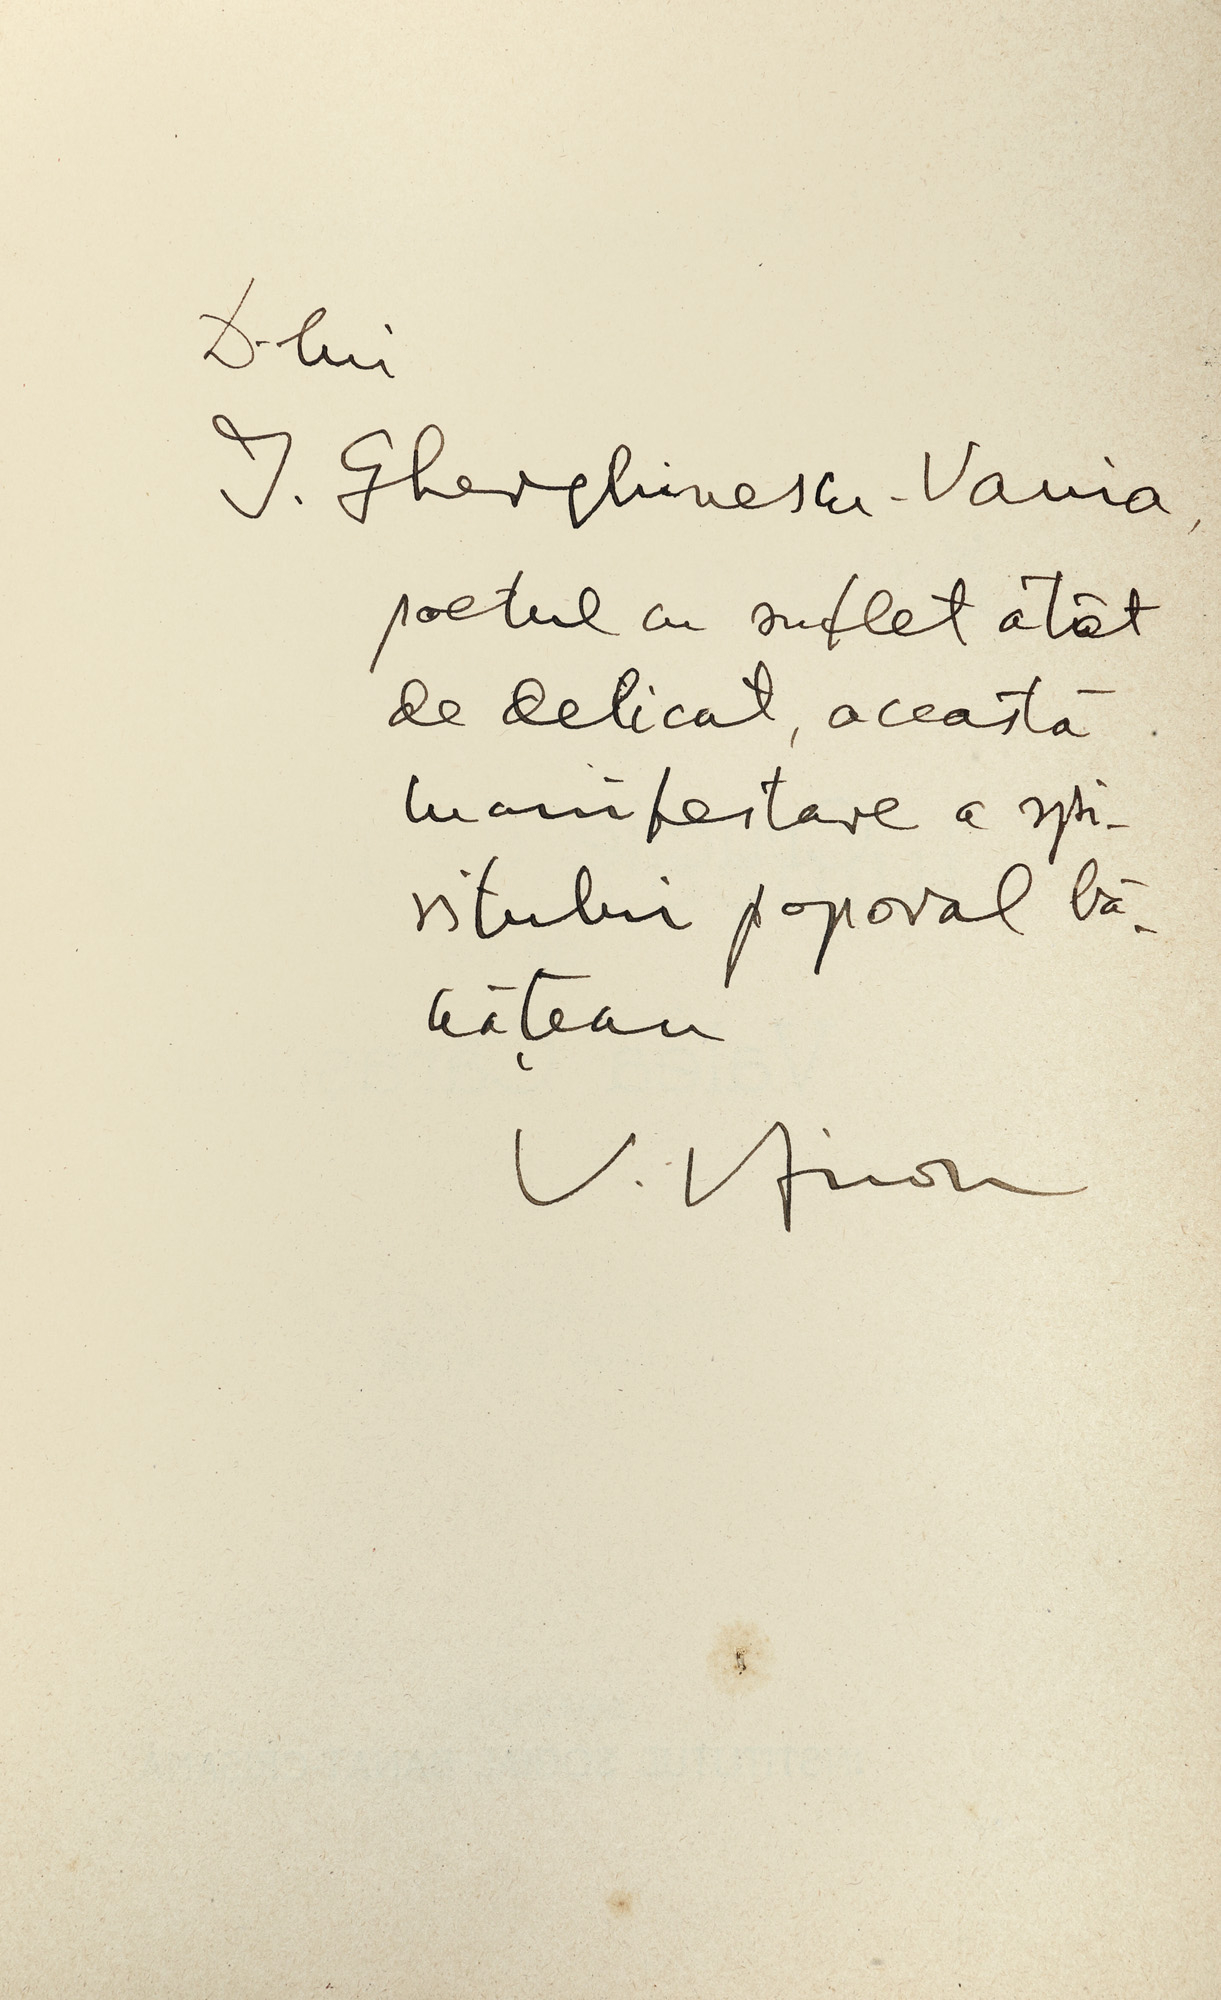 D-lui
I. Gherghinescu-Vania,
poetul cu suflet atât
de delicat, această
manifestare a spi-
ritului poporal bă-
nățean
V.